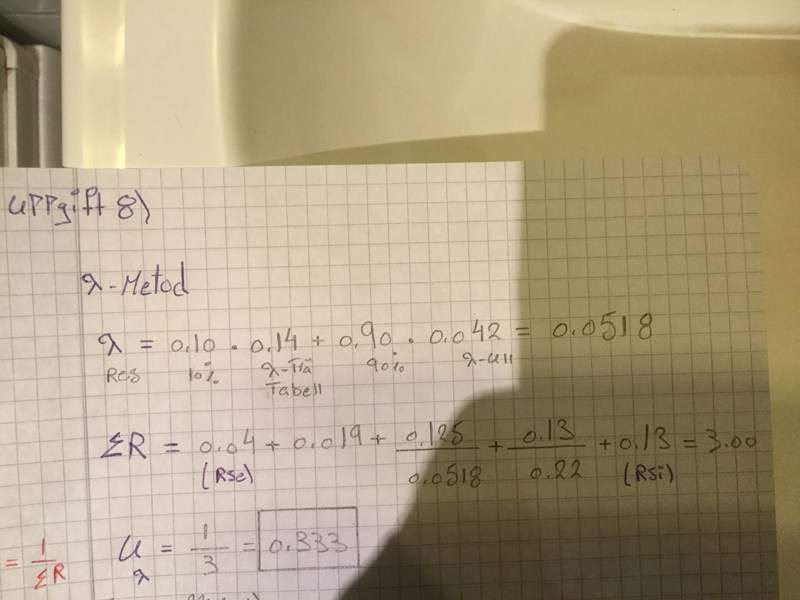 uppgift 8)
λ-Metod
λ = 0.10 · 0.14 + 0.90 · 0.042 = 0.0518
Res 10% λ-Trä 90% λ-ull
Tabell
ΣR = 0.04 + 0.019 + 0.125/0.0518 + 0.13/0.22 + 0.13 = 3.00
(Rse) (Rsi)
= 1/ΣR
U = 1/3 = 0.333
λ